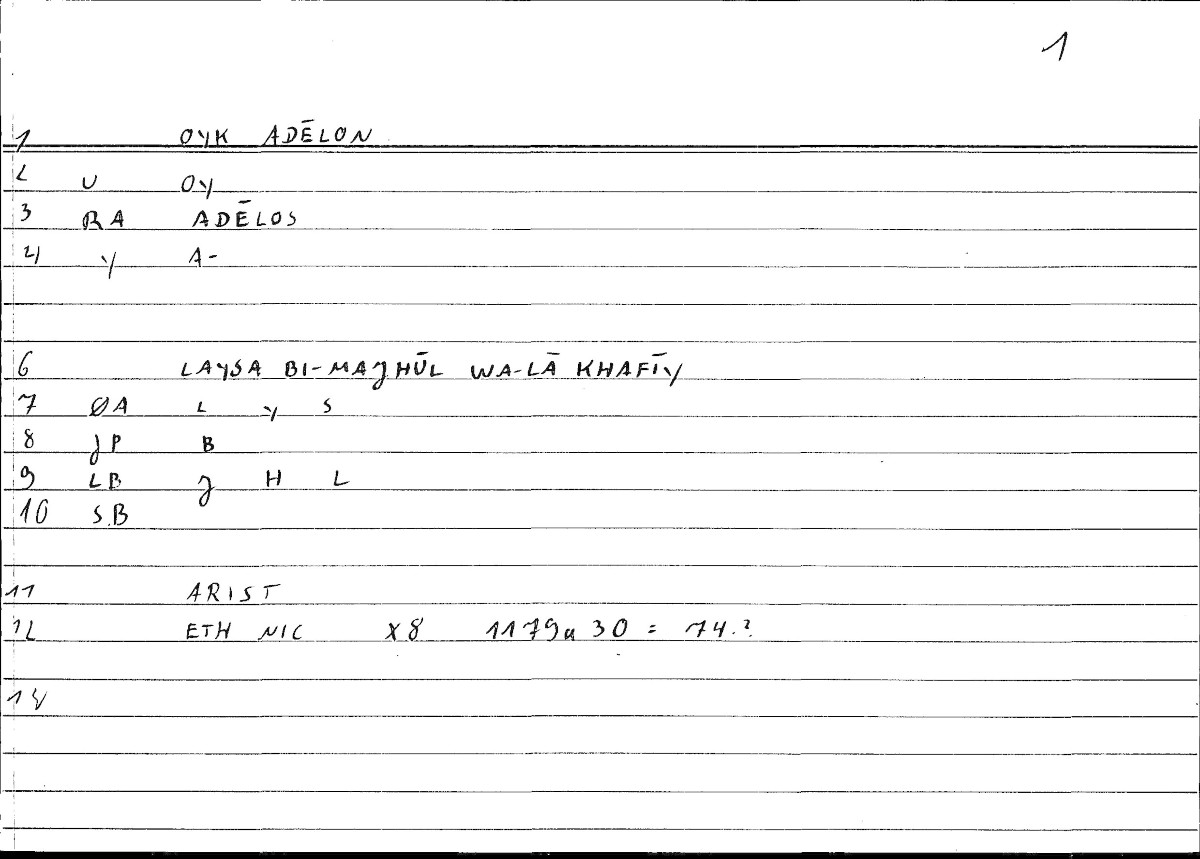 1
1 OYK ADĒLON
2 U OY
3 RA ADĒLOS
4 Y A-
6 LAYSA BI-MAJHŪL WA-LĀ KHAFĪY
7 ØA L Y S
8 JP B
9 LB J H L
10 SB
11 ARIST
12 ETH NIC X8 1179a 30 = 74.2
14